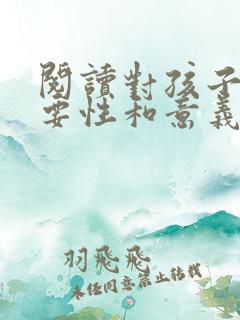 閱讀對孩子
要性和意義
羽飛飛
未經同意禁止轉載